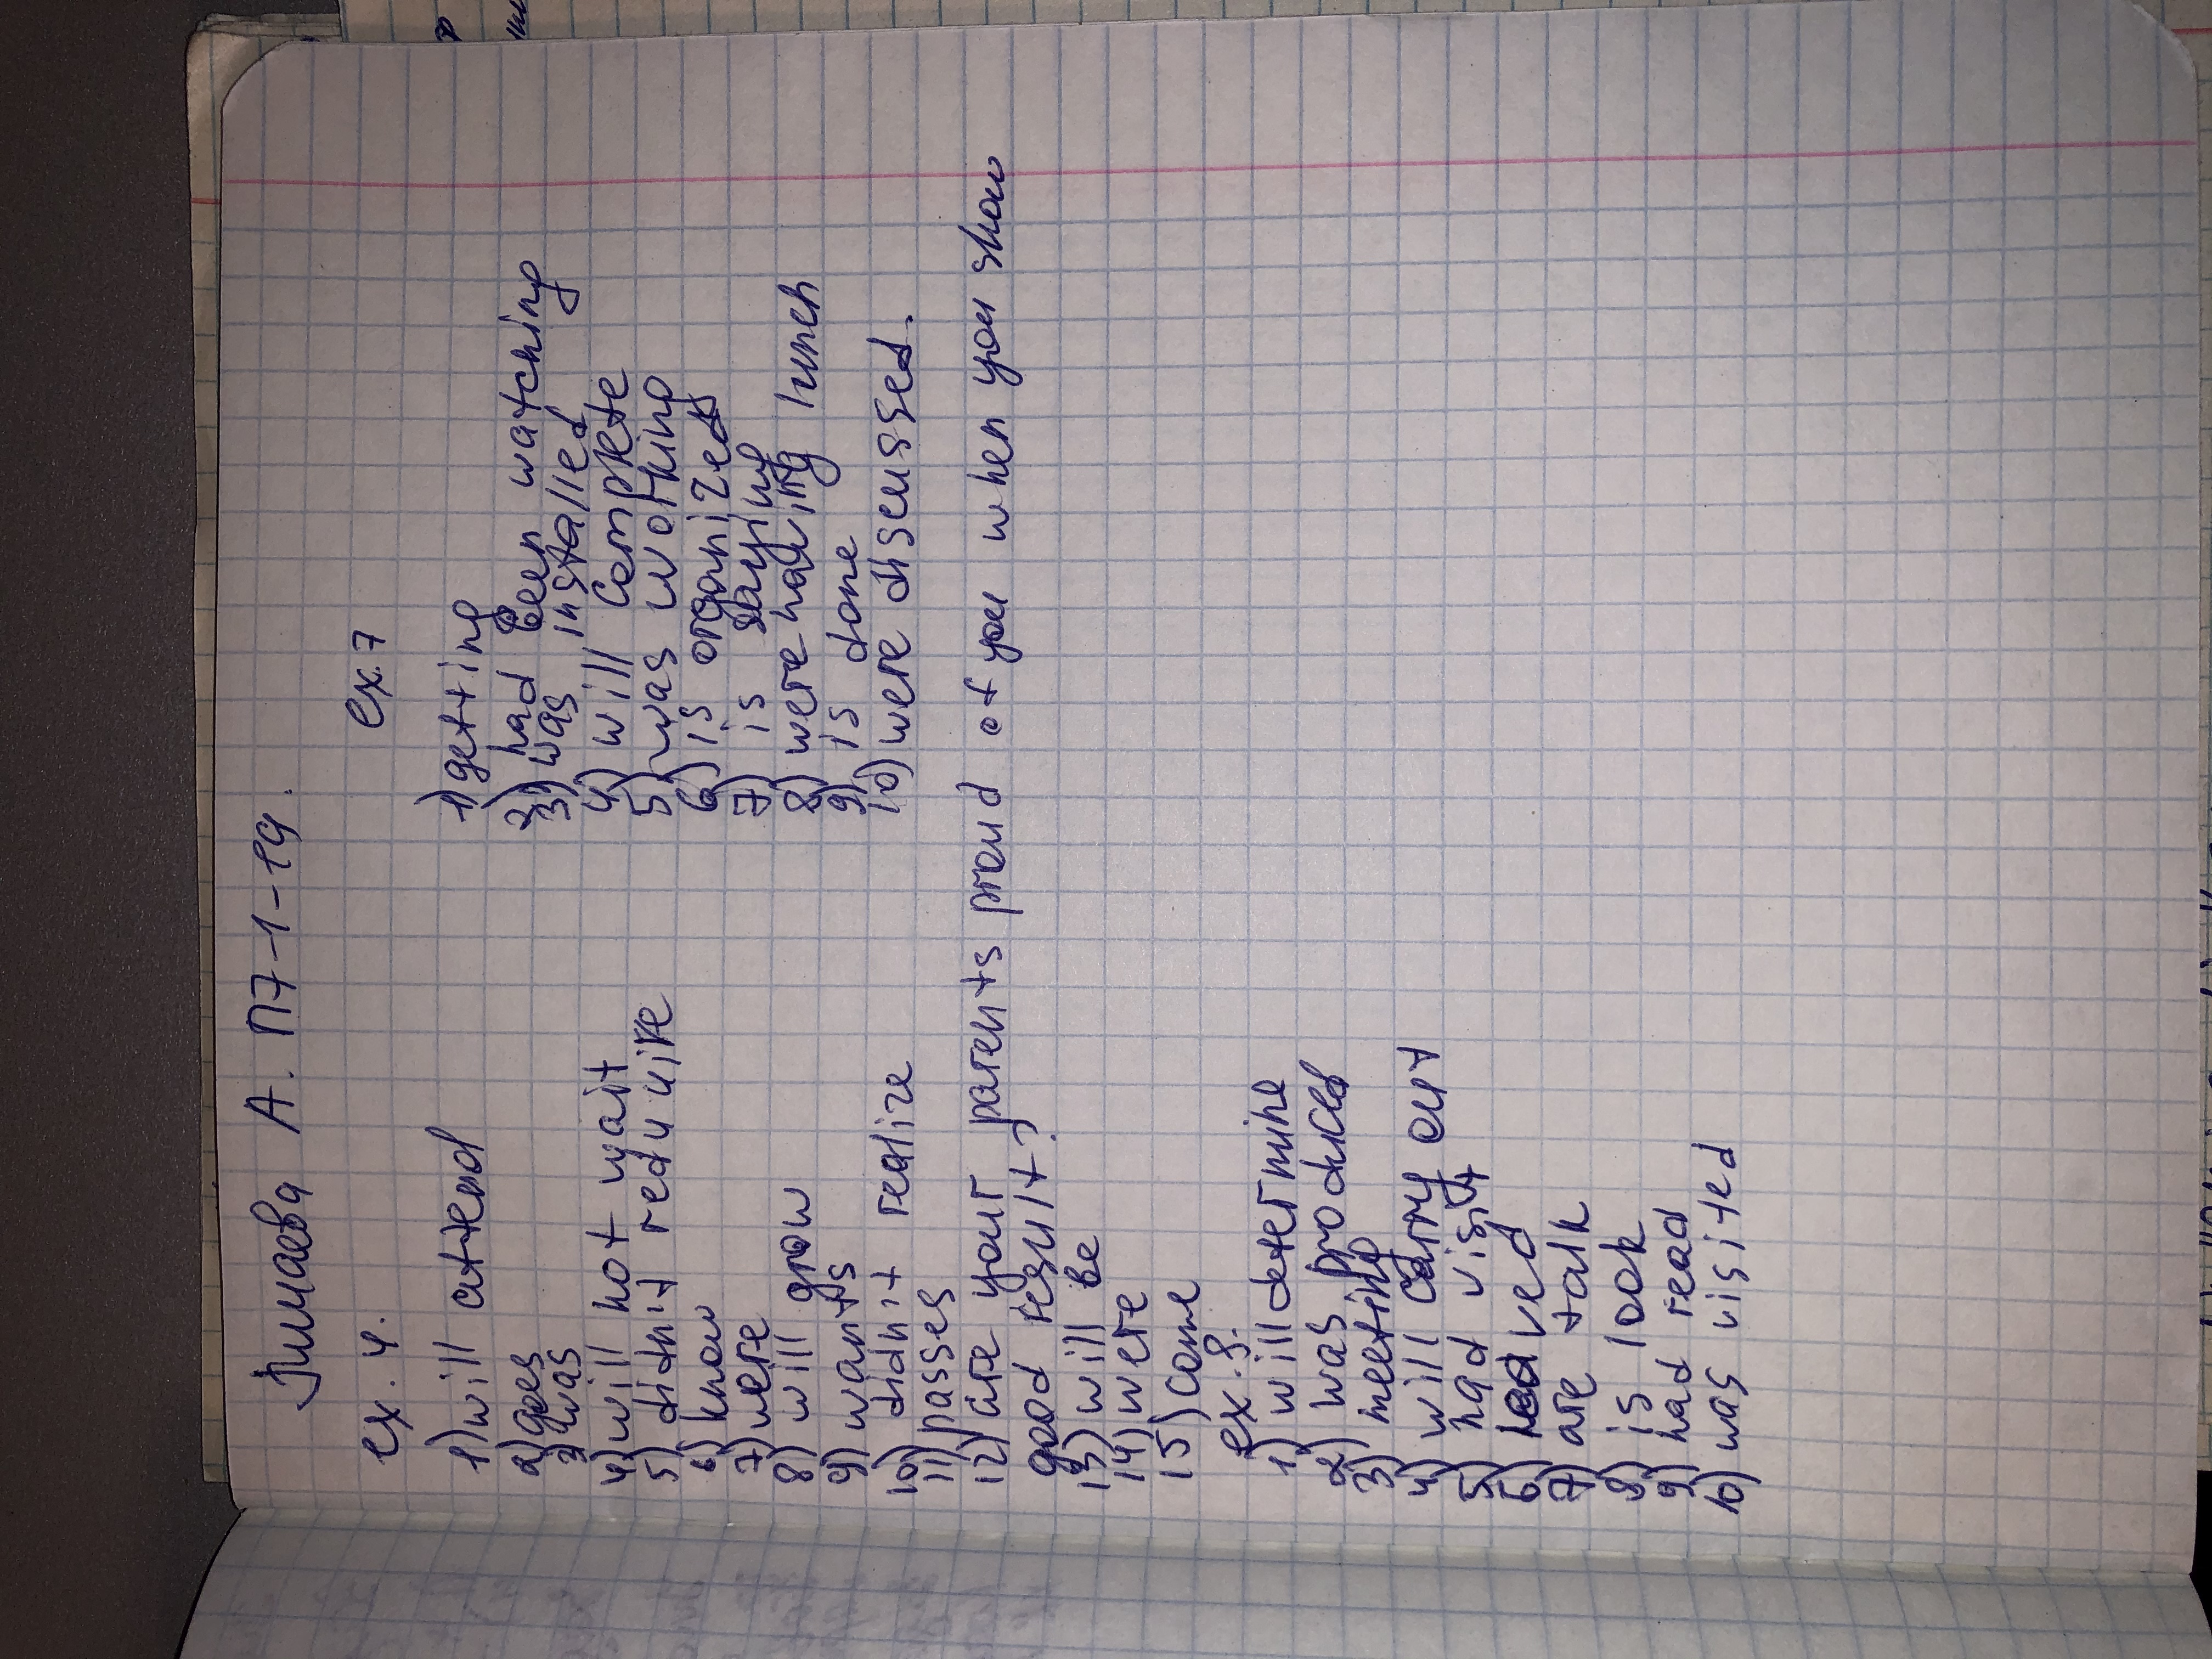 А. П7-1-19.
ex. 4.
1) will attend
2) goes
3) was
4) will not wait
5) didn't reduire
6) know
7) were
8) will grow
9) wants
10) didn't realize
11) passes
12) are your parents proud of you when you show
good result?
13) will be
14) were
15) come
ex. 8.
1) will determine
2) was produced
3) meeting
4) will carry out
5) had visit
6) ved
7) are talk
8) is look
9) had read
10) was visited
ex. 7
1) getting
2) had been watching
3) was installed
4) will complete
5) was working
6) is organized
7) is saying
8) were having lunch
9) is done
10) were discussed.